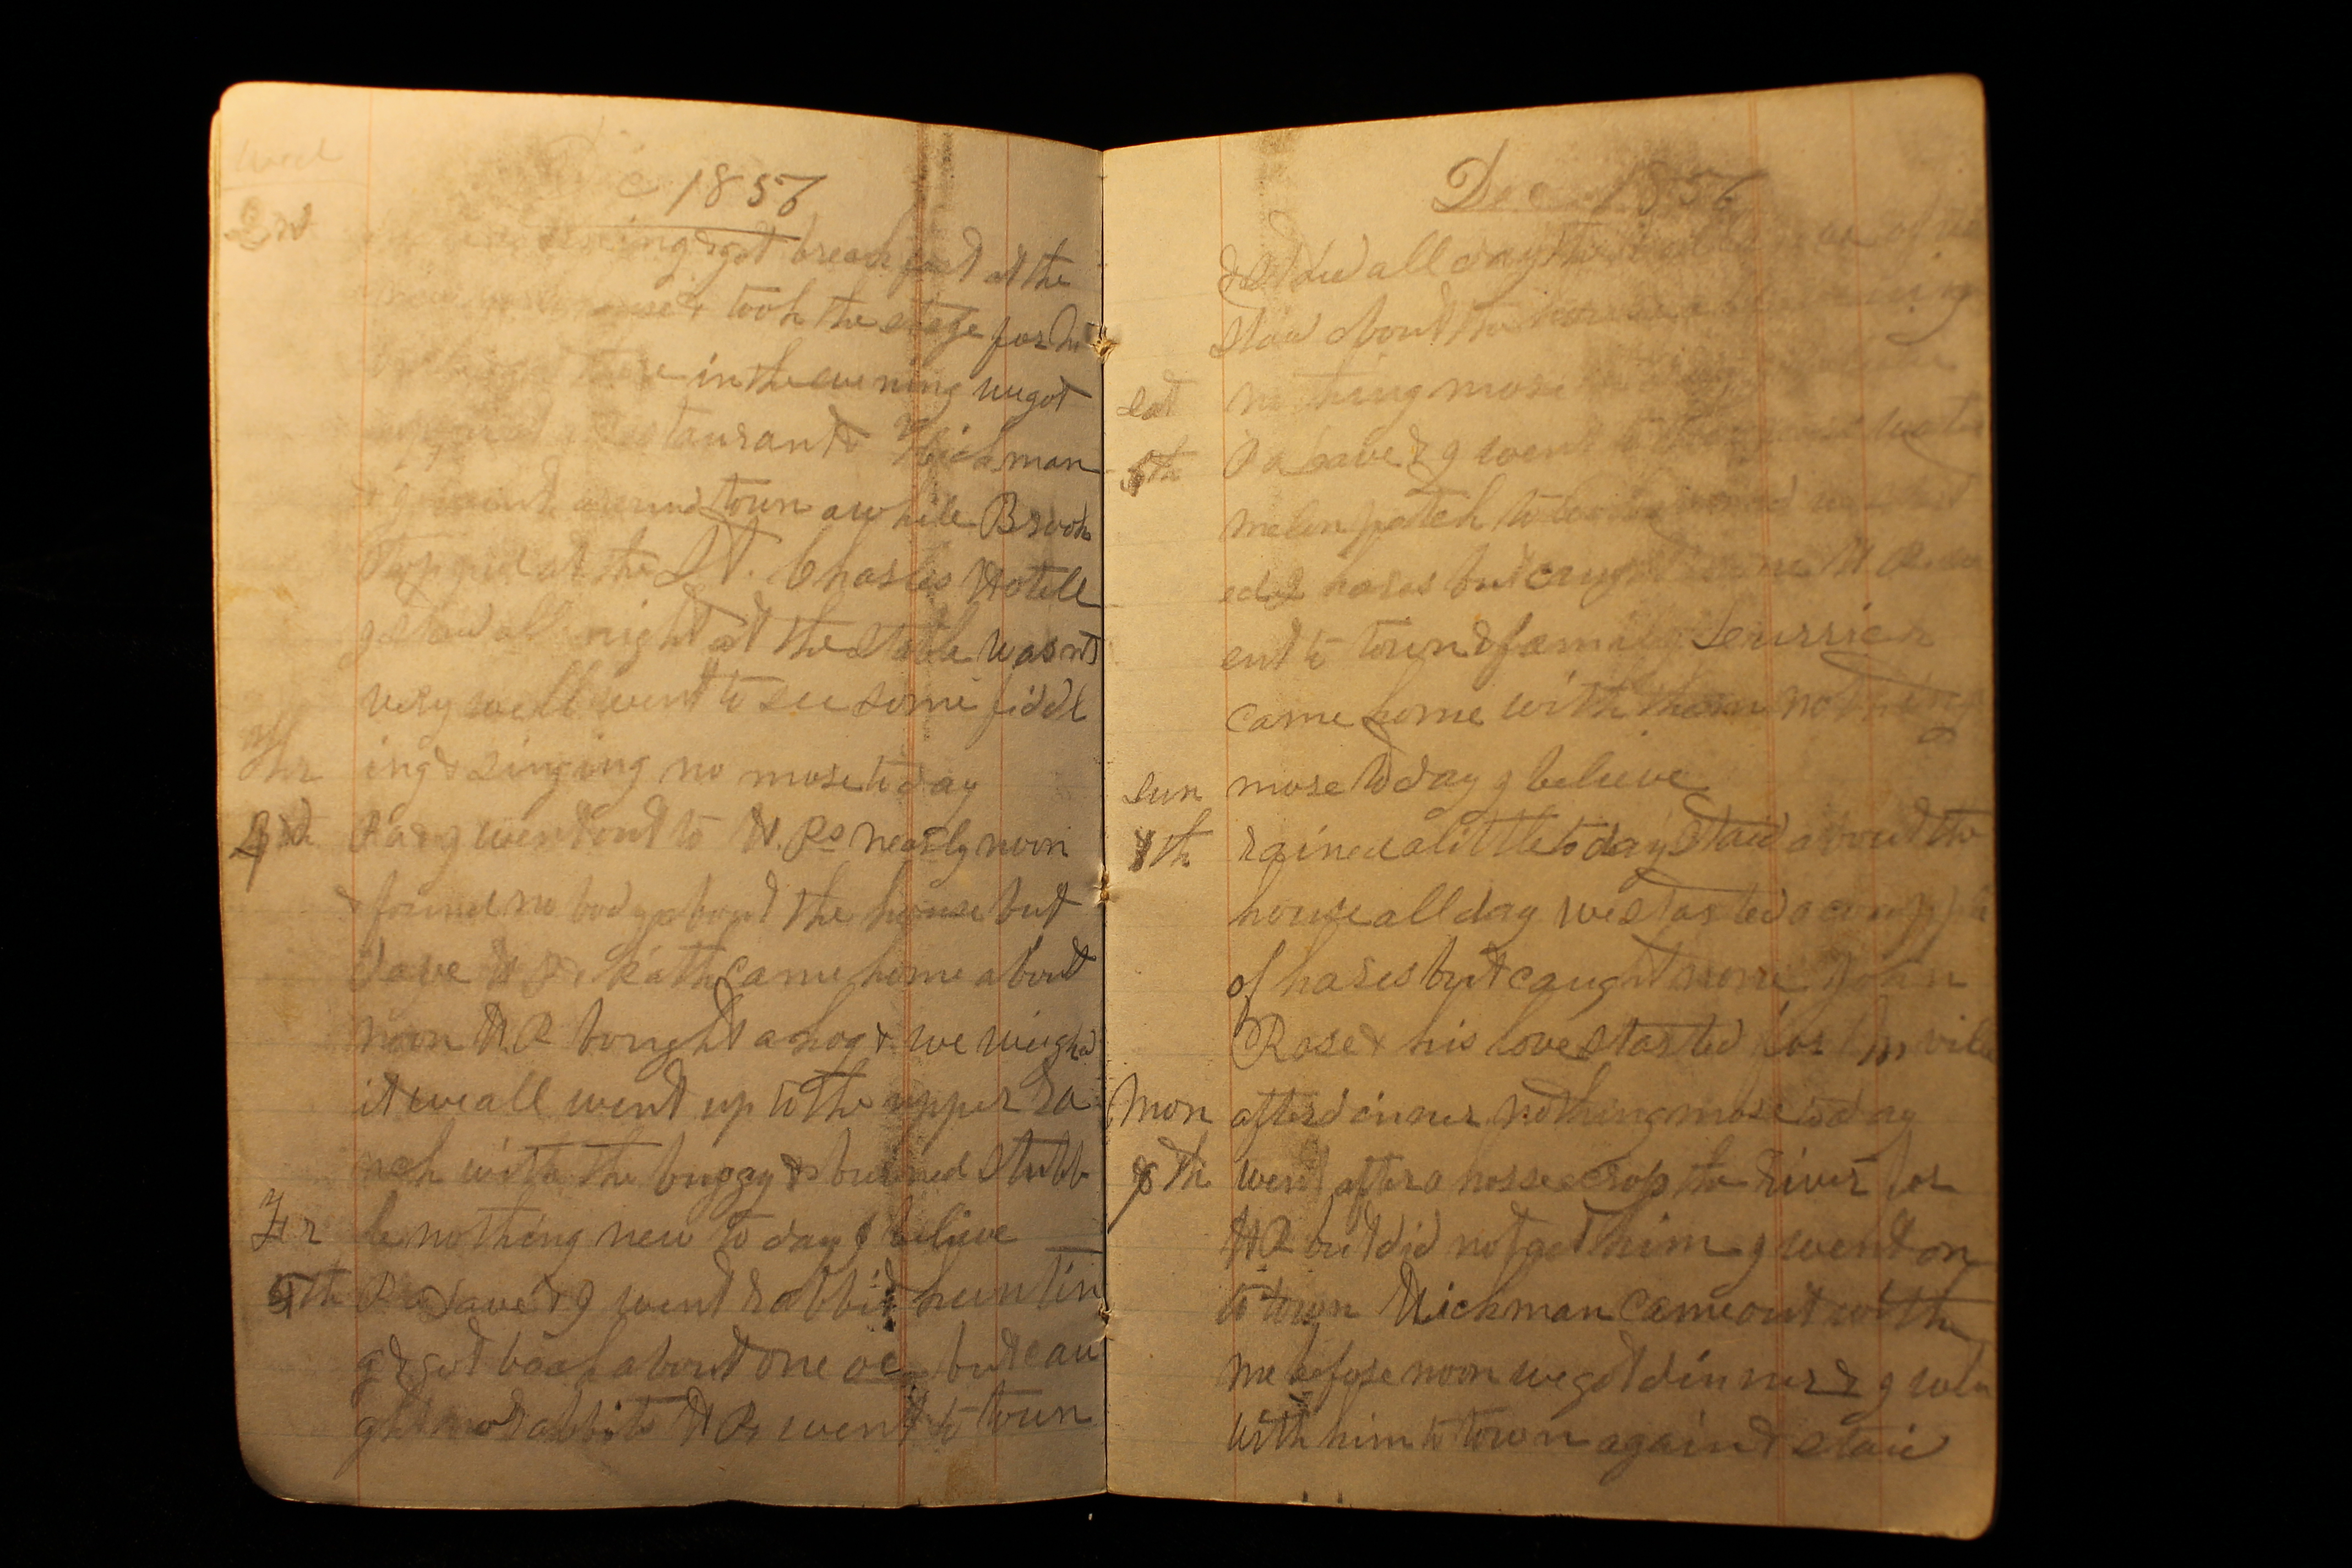 Wed
Dec 1856
2nd
got breakfast at the
& took the stage for
there in the evening we got
restaurant & Hickman
& I went around town awhile Brook
stopped at the St. Charles Hotell
I staid all night at the stable was nt
very well went to see some fiddl
Thr ing & singing no more to day
4th Pa & I went out to H. Rs nearly noon
& found no body about the house but
Dave H R & Kath came home about
noon H. R bought a hog & we weighd
it & we all went up to the upper ra
nch with the buggy & burned stubb
Fr le nothing new to day I believe
5th Pa Dave & I went rabbit huntin
g & got back about one oc but cau
ght no rabbits H R went to town
Dec 1856
& staid all day the
staid about the
Sat nothing more
6th Pa Dave & I went to the water
melon patch to
ed 2 hares but caught none H R
ent to town & family
came home with them nothing
Sun more to day I believe
7th rained a little to day staid about the
house all day we started a couple
of hares but caught none John
Rose & his love started for
Mon after dinner nothing more to day
8th went after a horse acrosp the river for
H R but did not get him I went on
to town Hickman came out with
me before noon we got dinner & I wen
with him to town again & staid